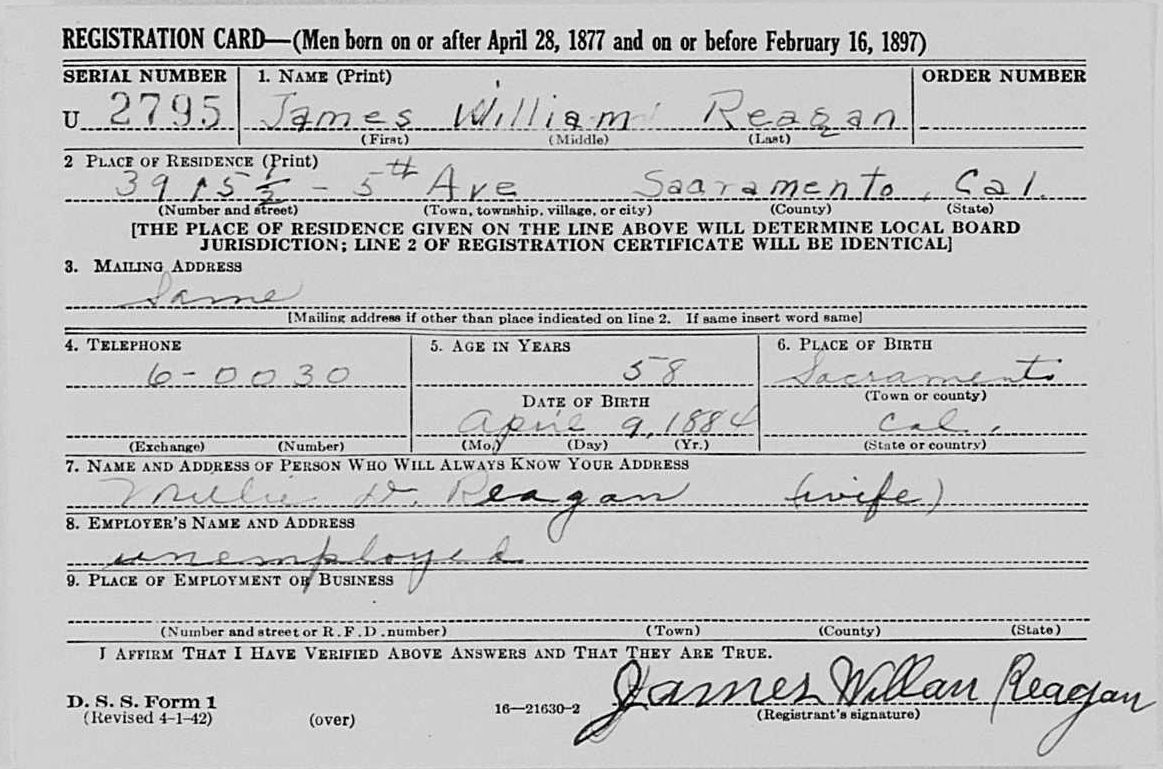 REGISTRATION CARD—(Men born on or after April 28, 1877 and on or before February 16, 1897)
SERIAL NUMBER 1. NAME (Print) ORDER NUMBER
U 2795 James William Reagan
(First) (Middle) (Last)
2 PLACE OF RESIDENCE (Print)
3915½ - 5th Ave Sacramento, Cal.
(Number and street) (Town, township, village, or city) (County) (State)
[THE PLACE OF RESIDENCE GIVEN ON THE LINE ABOVE WILL DETERMINE LOCAL BOARD
JURISDICTION; LINE 2 OF REGISTRATION CERTIFICATE WILL BE IDENTICAL]
3. MAILING ADDRESS
Same
[Mailing address if other than place indicated on line 2. If same insert word same]
4. TELEPHONE 5. AGE IN YEARS 6. PLACE OF BIRTH
6-0030 58 Sacramento
DATE OF BIRTH (Town or county)
April 9, 1884 Cal.
(Exchange) (Number) (Mo.) (Day) (Yr.) (State or country)
7. NAME AND ADDRESS OF PERSON WHO WILL ALWAYS KNOW YOUR ADDRESS
Millie D. Reagan (wife)
8. EMPLOYER'S NAME AND ADDRESS
unemployed
9. PLACE OF EMPLOYMENT OR BUSINESS
(Number and street or R. F. D. number) (Town) (County) (State)
I AFFIRM THAT I HAVE VERIFIED ABOVE ANSWERS AND THAT THEY ARE TRUE.
James Willan Reagan
D. S. S. Form 1
(Revised 4-1-42) (over) 16—21630-2 (Registrant's signature)